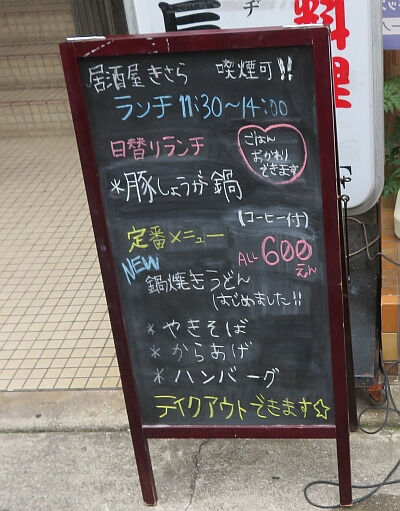 料理
居酒屋きさら 喫煙可!!
ランチ 11:30～14:00
日替りランチ
ごはん
おかわり
できます
*豚しょうが鍋
(コーヒー付)
定番メニュー
ALL 600えん
NEW
鍋焼きうどん
はじめました!!
*やきそば
*からあげ
*ハンバーグ
テイクアウトできます☆